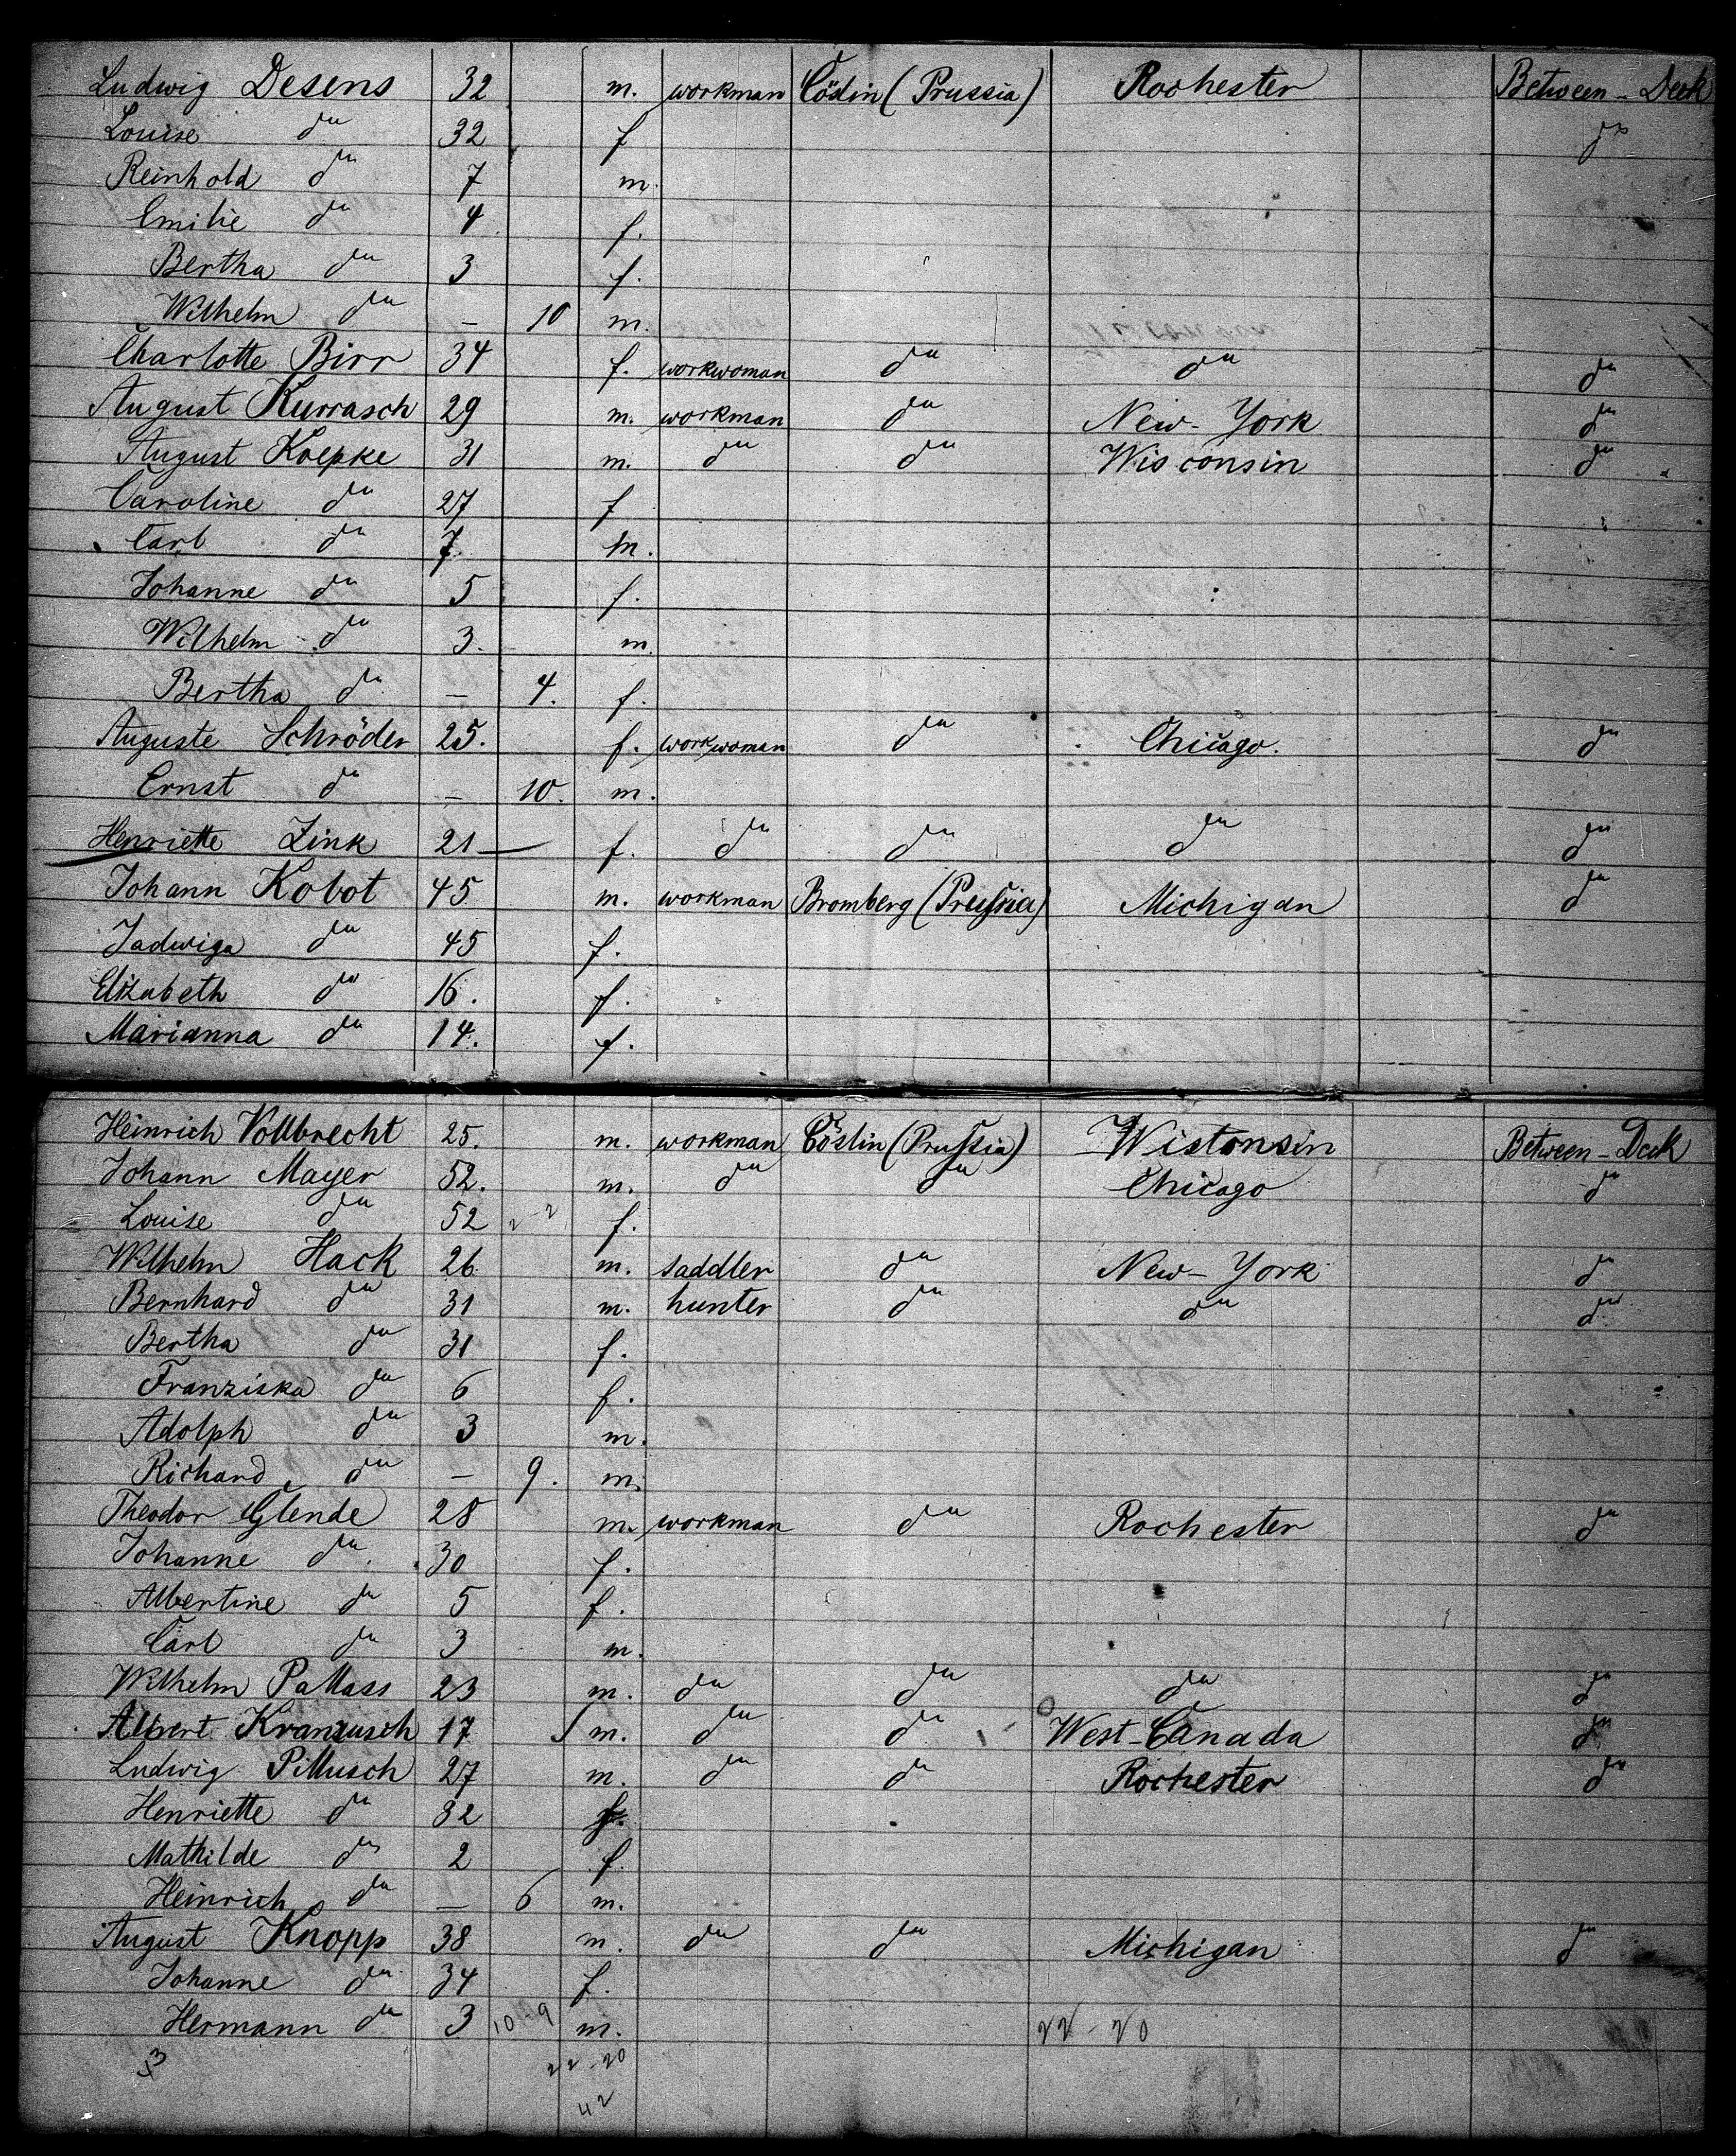 Ludwig Desens 32 m. workman Cöslin (Prussia) Rochester Between-Deck
Louise do 32 f do
Reinhold do 7 m.
Emilie do 4 f.
Bertha do 3 f.
Wilhelm do — 10 m.
Charlotte Birr 34 f. workwoman do do do
August Kurrasch 29 m. workman do New-York do
August Koepke 31 m. do do Wisconsin do
Caroline do 27 f
Carl do 7. m.
Johanne do 5 f.
Wilhelm do 3. m.
Bertha do — 4. f.
Auguste Schröder 25. f. workwoman do Chicago. do
Ernst do — 10. m.
Henriette Zink 21 — f. do do do do
Johann Kobot 45 m. workman Bromberg (Prussia) Michigan do
Jadwiga do 45 f.
Elizabeth do 16. f.
Marianna do 14. f.
Heinrich Vollbrecht 25. m. workman Cöslin (Prussia) Wistonsin Between-Deck
Johann Mayer 52. m. do do Chicago do
Louise do 52 2-2 f.
Wilhelm Hack 26 m. saddler do New-York do
Bernhard do 31 m. hunter do do do
Bertha do 31 f.
Franziska do 6 f.
Adolph do 3 m.
Richard do — 9. m.
Theodor Glende 28 m. workman do Rochester do
Johanne do 30 f.
Albertine do 5 f.
Carl do 3 m.
Wilhelm Pallass 23 m. do do do do
Albert Kranzusch 17 m. do do West-Canada do
Ludwig Pillusch 27 m. do do Rochester do
Henriette do 32 f.
Mathilde do 2 f.
Heinrich do — 6 m.
August Knopp 38 m. do do Michigan do
Johanne do 34 f.
Hermann do 3 10-9 m. 22-20
22-20
42